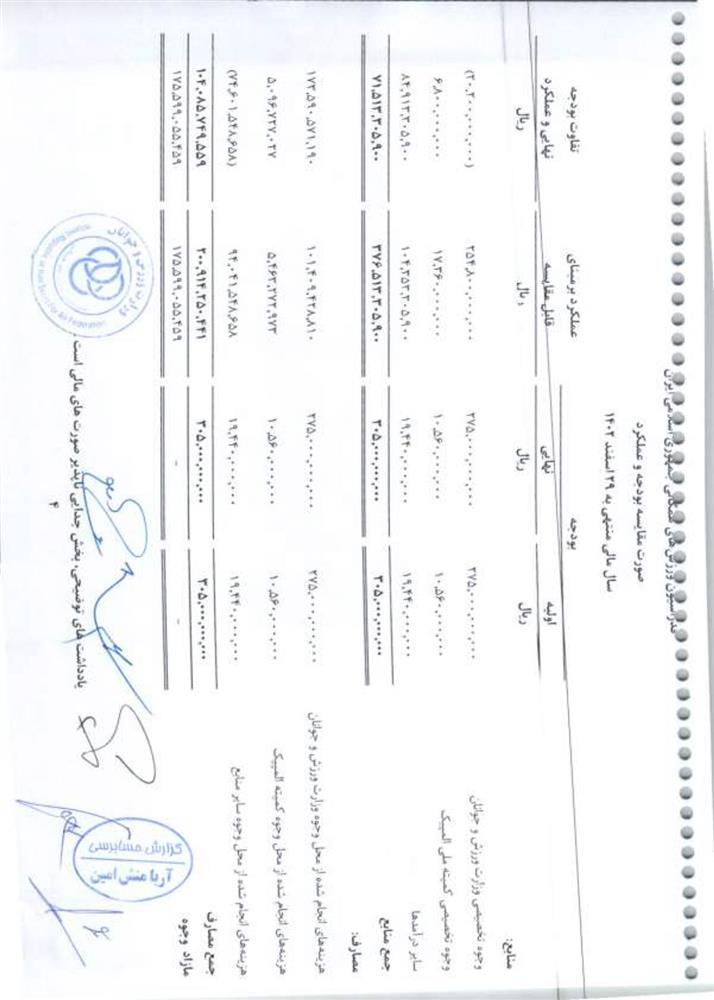 فدراسیون ورزش های همگانی جمهوری اسلامی ایران
صورت مقایسه بودجه و عملکرد
سال مالی منتهی به ۲۹ اسفند ۱۴۰۲
بودجه
اولیه نهایی عملکرد بر مبنای قابل مقایسه تفاوت بودجه نهایی و عملکرد
ریال ریال ریال ریال
منابع:
وجوه تخصیصی وزارت ورزش و جوانان ۲۷۵,۰۰۰,۰۰۰,۰۰۰ ۲۷۵,۰۰۰,۰۰۰,۰۰۰ ۲۵۴,۸۰۰,۰۰۰,۰۰۰ (۲۰,۲۰۰,۰۰۰,۰۰۰)
وجوه تخصیصی کمیته ملی المپیک ۱۰,۵۶۰,۰۰۰,۰۰۰ ۱۰,۵۶۰,۰۰۰,۰۰۰ ۱۷,۳۶۰,۰۰۰,۰۰۰ ۶,۸۰۰,۰۰۰,۰۰۰
سایر درآمدها ۱۹,۴۴۰,۰۰۰,۰۰۰ ۱۹,۴۴۰,۰۰۰,۰۰۰ ۱۰۴,۳۵۳,۳۰۵,۹۰۰ ۸۴,۹۱۳,۳۰۵,۹۰۰
جمع منابع ۳۰۵,۰۰۰,۰۰۰,۰۰۰ ۳۰۵,۰۰۰,۰۰۰,۰۰۰ ۳۷۶,۵۱۳,۳۰۵,۹۰۰ ۷۱,۵۱۳,۳۰۵,۹۰۰
مصارف:
هزینه‌های انجام شده از محل وجوه وزارت ورزش و جوانان ۲۷۵,۰۰۰,۰۰۰,۰۰۰ ۲۷۵,۰۰۰,۰۰۰,۰۰۰ ۱۰۱,۴۰۹,۴۲۸,۸۱۰ ۱۷۳,۵۹۰,۵۷۱,۱۹۰
هزینه‌های انجام شده از محل وجوه کمیته المپیک ۱۰,۵۶۰,۰۰۰,۰۰۰ ۱۰,۵۶۰,۰۰۰,۰۰۰ ۵,۴۶۳,۲۷۲,۹۷۳ ۵,۰۹۶,۷۲۷,۰۲۷
هزینه‌های انجام شده از محل وجوه سایر منابع ۱۹,۴۴۰,۰۰۰,۰۰۰ ۱۹,۴۴۰,۰۰۰,۰۰۰ ۹۴,۰۴۱,۵۴۸,۶۵۸ (۷۴,۶۰۱,۵۴۸,۶۵۸)
جمع مصارف ۳۰۵,۰۰۰,۰۰۰,۰۰۰ ۳۰۵,۰۰۰,۰۰۰,۰۰۰ ۲۰۰,۹۱۴,۲۵۰,۴۴۱ ۱۰۴,۰۸۵,۷۴۹,۵۵۹
مازاد وجوه - - ۱۷۵,۵۹۹,۰۵۵,۴۵۹ ۱۷۵,۵۹۹,۰۵۵,۴۵۹
یادداشت های توضیحی، بخش جدایی ناپذیر صورت های مالی است.
۴
گزارش حسابرسی
آریا منش امین
وزارت ورزش و جوانان